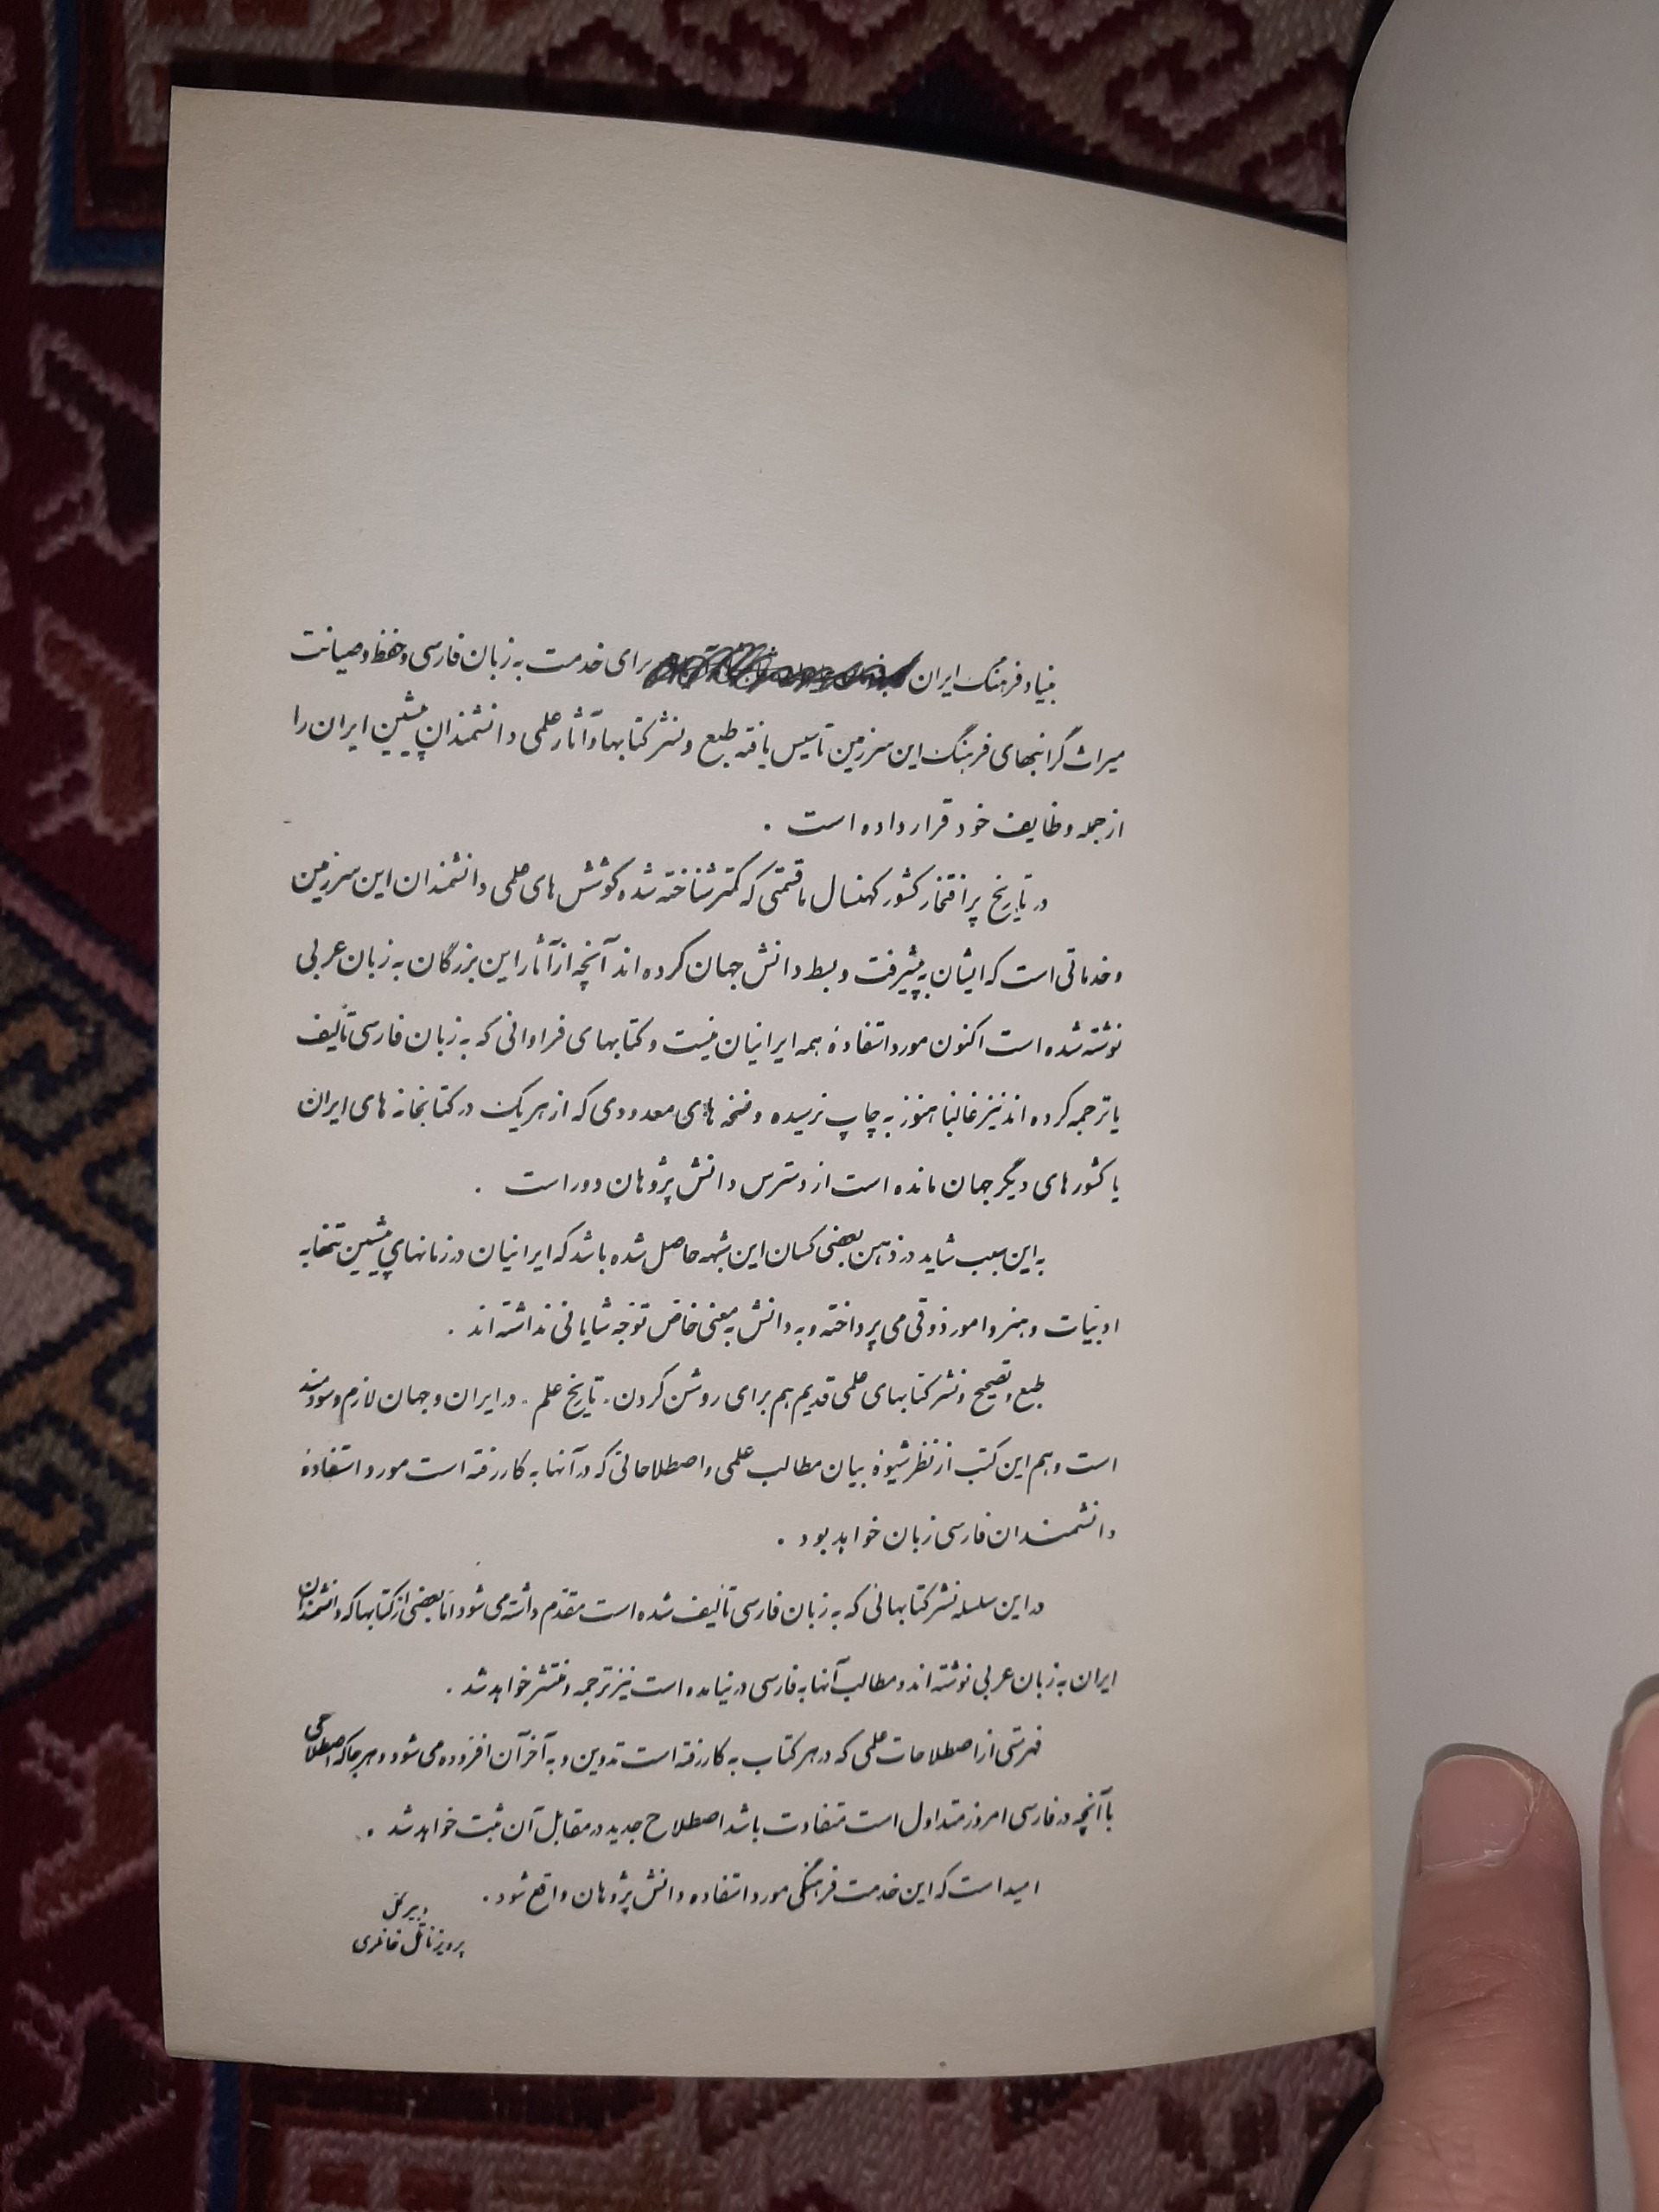 بنیاد فرهنگ ایران برای خدمت به زبان فارسی و حفظ و صیانت
میراث گرانبهای فرهنگ این سرزمین تأسیس یافته طبع و نشر کتابها و آثار علمی دانشمندان پیشین ایران را
از جمله وظایف خود قرار داده است .
در تاریخ پر افتخار کشور کهنسال ما قسمتی که کمتر شناخته شده کوشش های علمی دانشمندان این سرزمین
و خدماتی است که ایشان به پیشرفت و بسط دانش جهان کرده اند آنچه از آثار این بزرگان به زبان عربی
نوشته شده است اکنون مورد استفادهٔ همه ایرانیان نیست و کتابهای فراوانی که به زبان فارسی تألیف
یا ترجمه کرده اند نیز غالبا هنوز به چاپ نرسیده و نسخه های معدودی که از هر یک در کتابخانه های ایران
یا کشورهای دیگر جهان مانده است از دسترس دانش پژوهان دور است .
به این سبب شاید در ذهن بعضی کسان این شبهه حاصل شده باشد که ایرانیان در زمانهای پیشین تنها به
ادبیات و هنر و امور ذوقی می پرداخته و به دانش به معنی خاص توجه شایانی نداشته اند .
طبع و تصحیح و نشر کتابهای علمی قدیم هم برای روشن کردن - تاریخ علم - در ایران و جهان لازم و سودمند
است و هم این کتب از نظر شیوهٔ بیان مطالب علمی و اصطلاحاتی که در آنها به کار رفته است مورد استفادهٔ
دانشمندان فارسی زبان خواهد بود .
در این سلسله نشر کتابهائی که به زبان فارسی تألیف شده است مقدم داشته می شود اما بعضی از کتابها که دانشمندان
ایران به زبان عربی نوشته اند و مطالب آنها به فارسی در نیامده است نیز ترجمه و منتشر خواهد شد .
فهرستی از اصطلاحات علمی که در هر کتاب به کار رفته است تدوین و به آخر آن افزوده می شود و هر جا که اصطلاحی
با آنچه در فارسی امروز متداول است متفاوت باشد اصطلاح جدید در مقابل آن ثبت خواهد شد .
امید است که این خدمت فرهنگی مورد استفاده دانش پژوهان واقع شود .
دبیر کل
پرویز ناتل خانلری